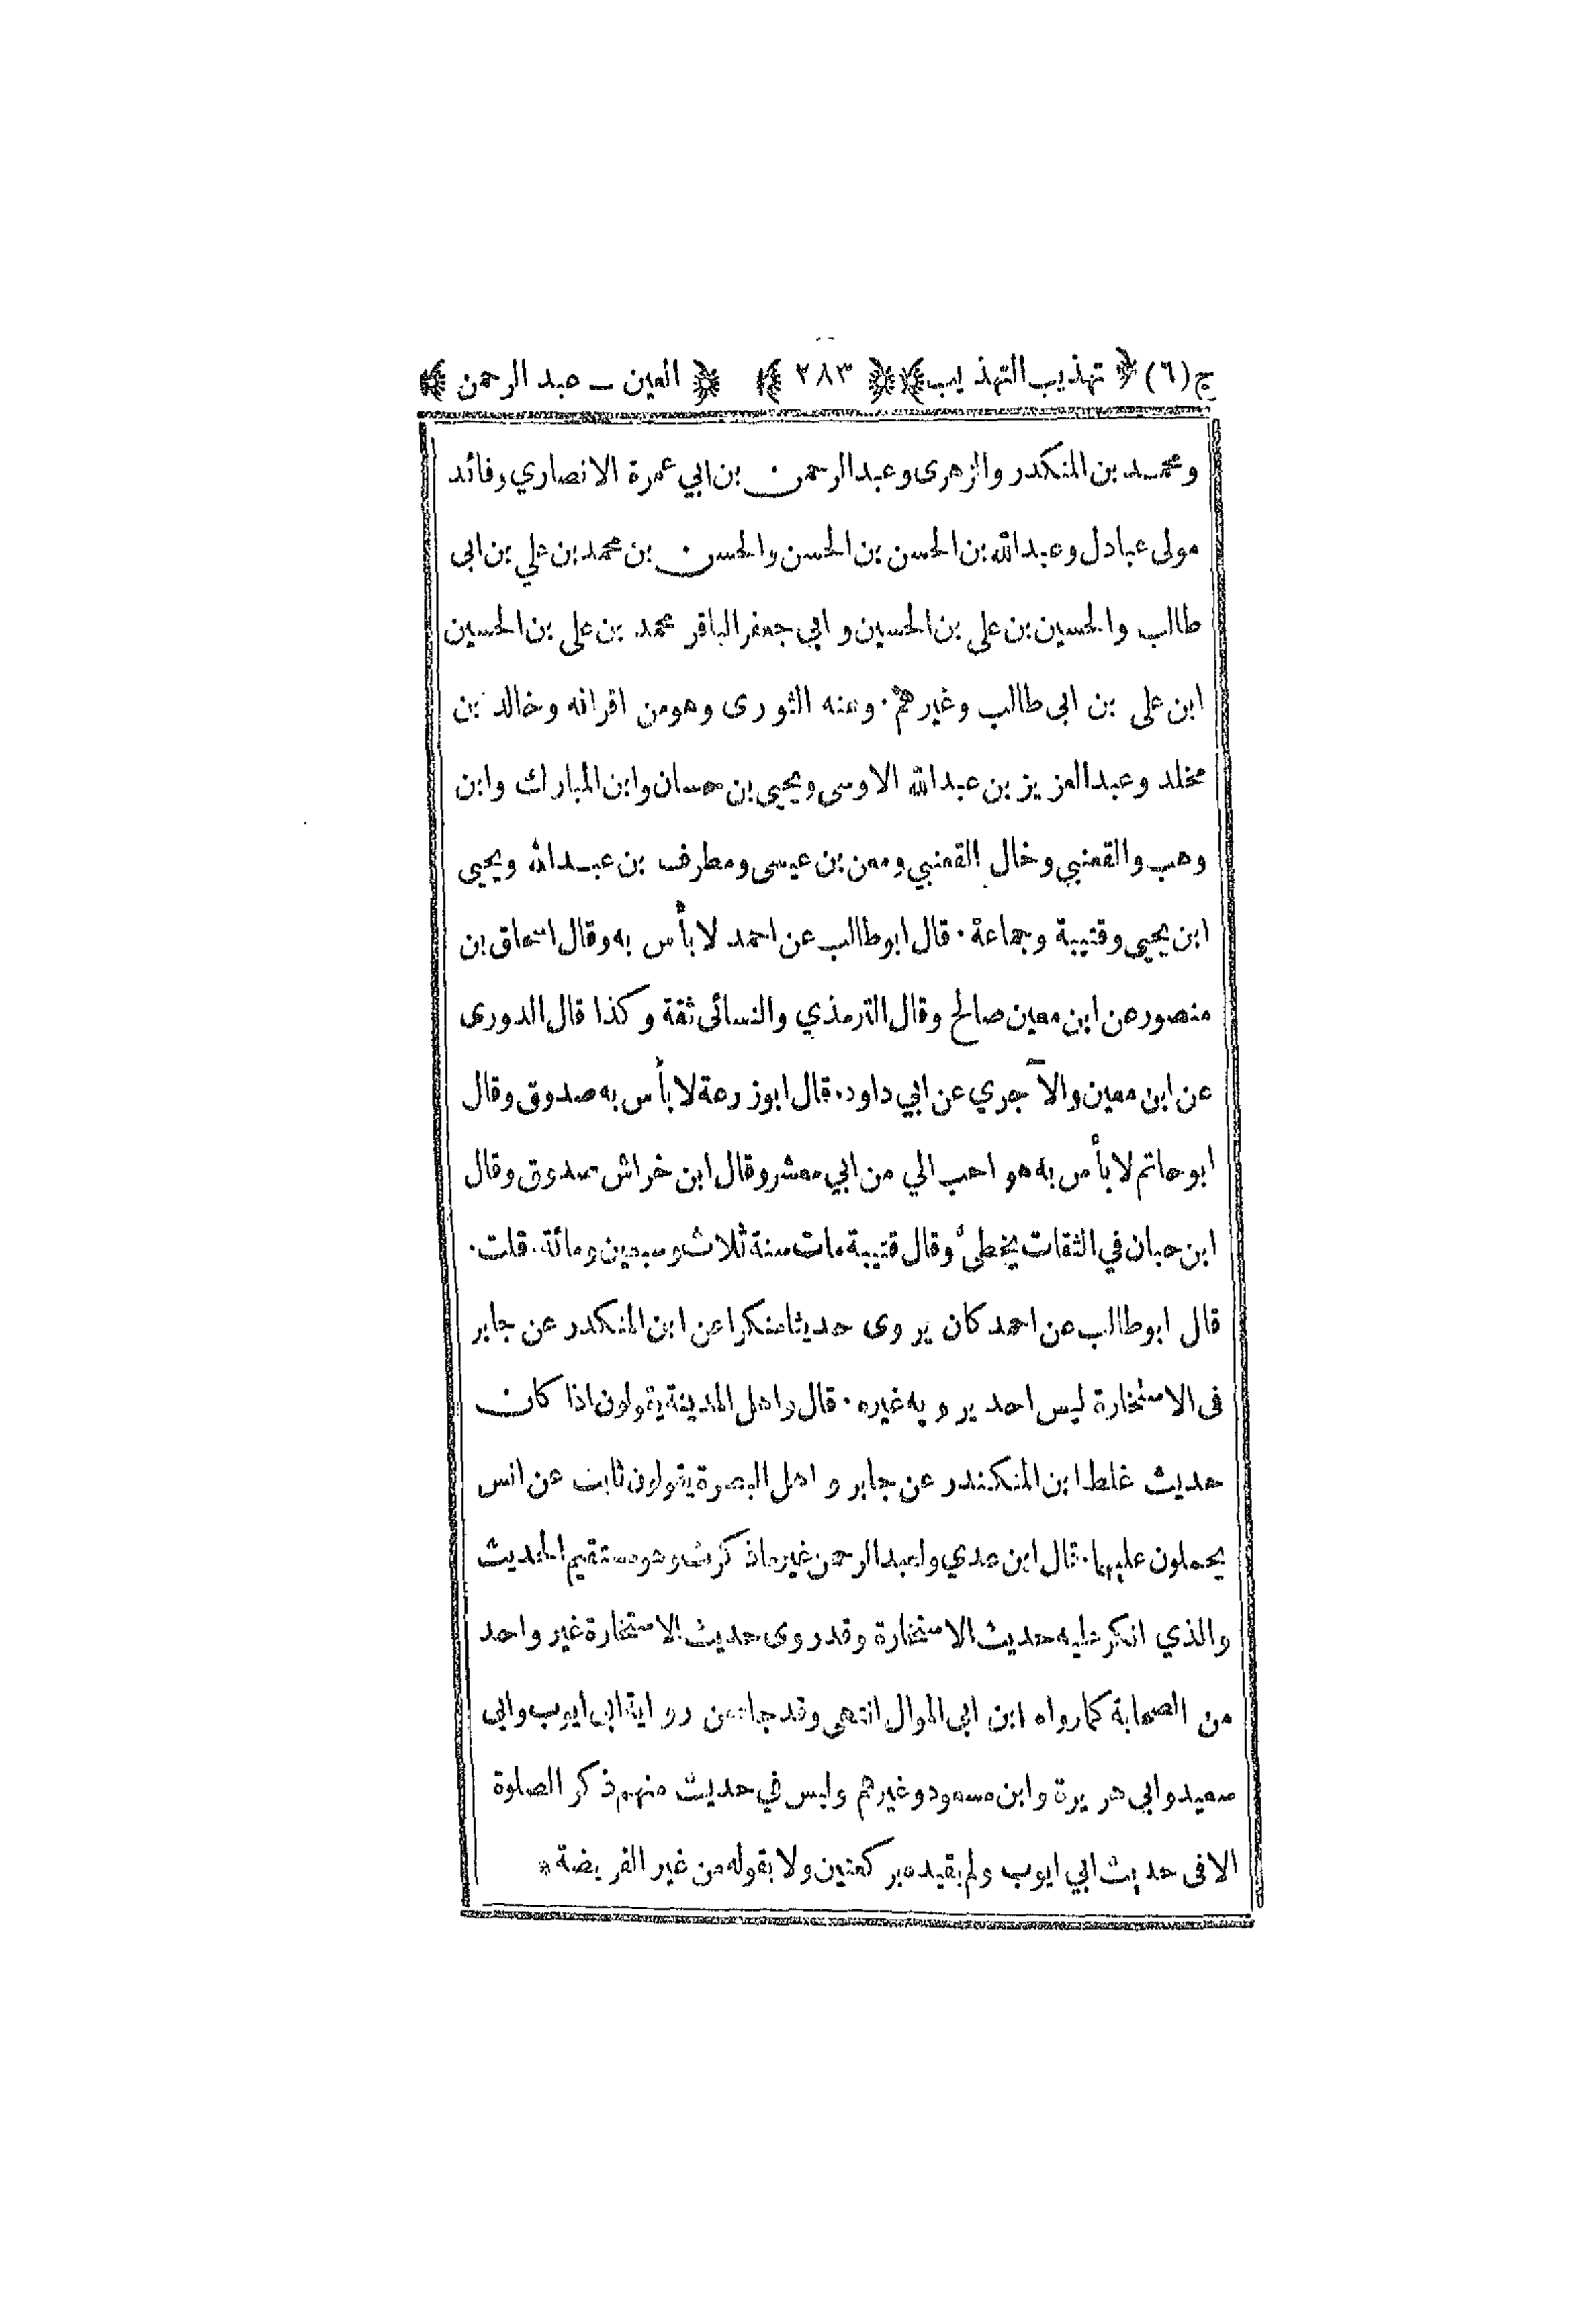 ج(٦) ﴿ تهذيب التهذيب ﴾ ﴿ ٢٨٣ ﴾ ﴿ العين ــ عبد الرحمن ﴾
ومحمد بن المنكدر والزهرى وعبدالرحمن بن ابي عمرة الانصاري وفائد
مولى عبادل وعبدالله بن الحسن بن الحسن والحسن بن محمد بن علي بن ابى
طالب والحسين بن على بن الحسين و ابي جعفر الباقر محمد بن على بن الحسين
ابن على بن ابى طالب وغيرهم. وعنه الثورى وهومن اقرانه وخالد بن
مخلد وعبدالعزيز بن عبدالله الاوسى ويحيى بن حسان وابن المبارك وابن
وهب والقعنبي وخال القعنبي ومعن بن عيسى ومطرف بن عبدالله ويحيى
ابن يحيى وقتيبة وجماعة. قال ابوطالب عن احمد لا بأس به وقال اسحاق بن
منصور عن ابن معين صالح وقال الترمذي والنسائى ثقة وكذا قال الدورى
عن ابن معين والآجري عن ابي داود. قال ابوزرعة لا بأس به صدوق وقال
ابوحاتم لا بأس به هو احب الي من ابي معشر وقال ابن خراش صدوق وقال
ابن حبان في الثقات يخطئ وقال قتيبة مات سنة ثلاث وسبعين ومائة. قلت.
قال ابوطالب عن احمد كان يروى حديثا منكرا عن ابن المنكدر عن جابر
فى الاستخارة ليس احد يرويه غيره. قال واهل المدينة يقولون اذا كان
حديث غلط ابن المنكندر عن جابر و اهل البصرة يقولون ثابت عن انس
يحملون عليهما. قال ابن عدي ولعبدالرحمن غيرماذكرت وهومستقيم الحديث
والذي انكر عليه حديث الاستخارة وقدروى حديث الاستخارة غير واحد
من الصحابة كمارواه ابن ابى الموال انتهى وقد جاء من رواية ابى ايوب وابى
سعيد وابى هريرة وابن مسعود وغيرهم وليس في حديث منهم ذكر الصلوة
الافى حديث ابي ايوب ولم يقيده بركعتين ولا بقوله من غير الفريضة*